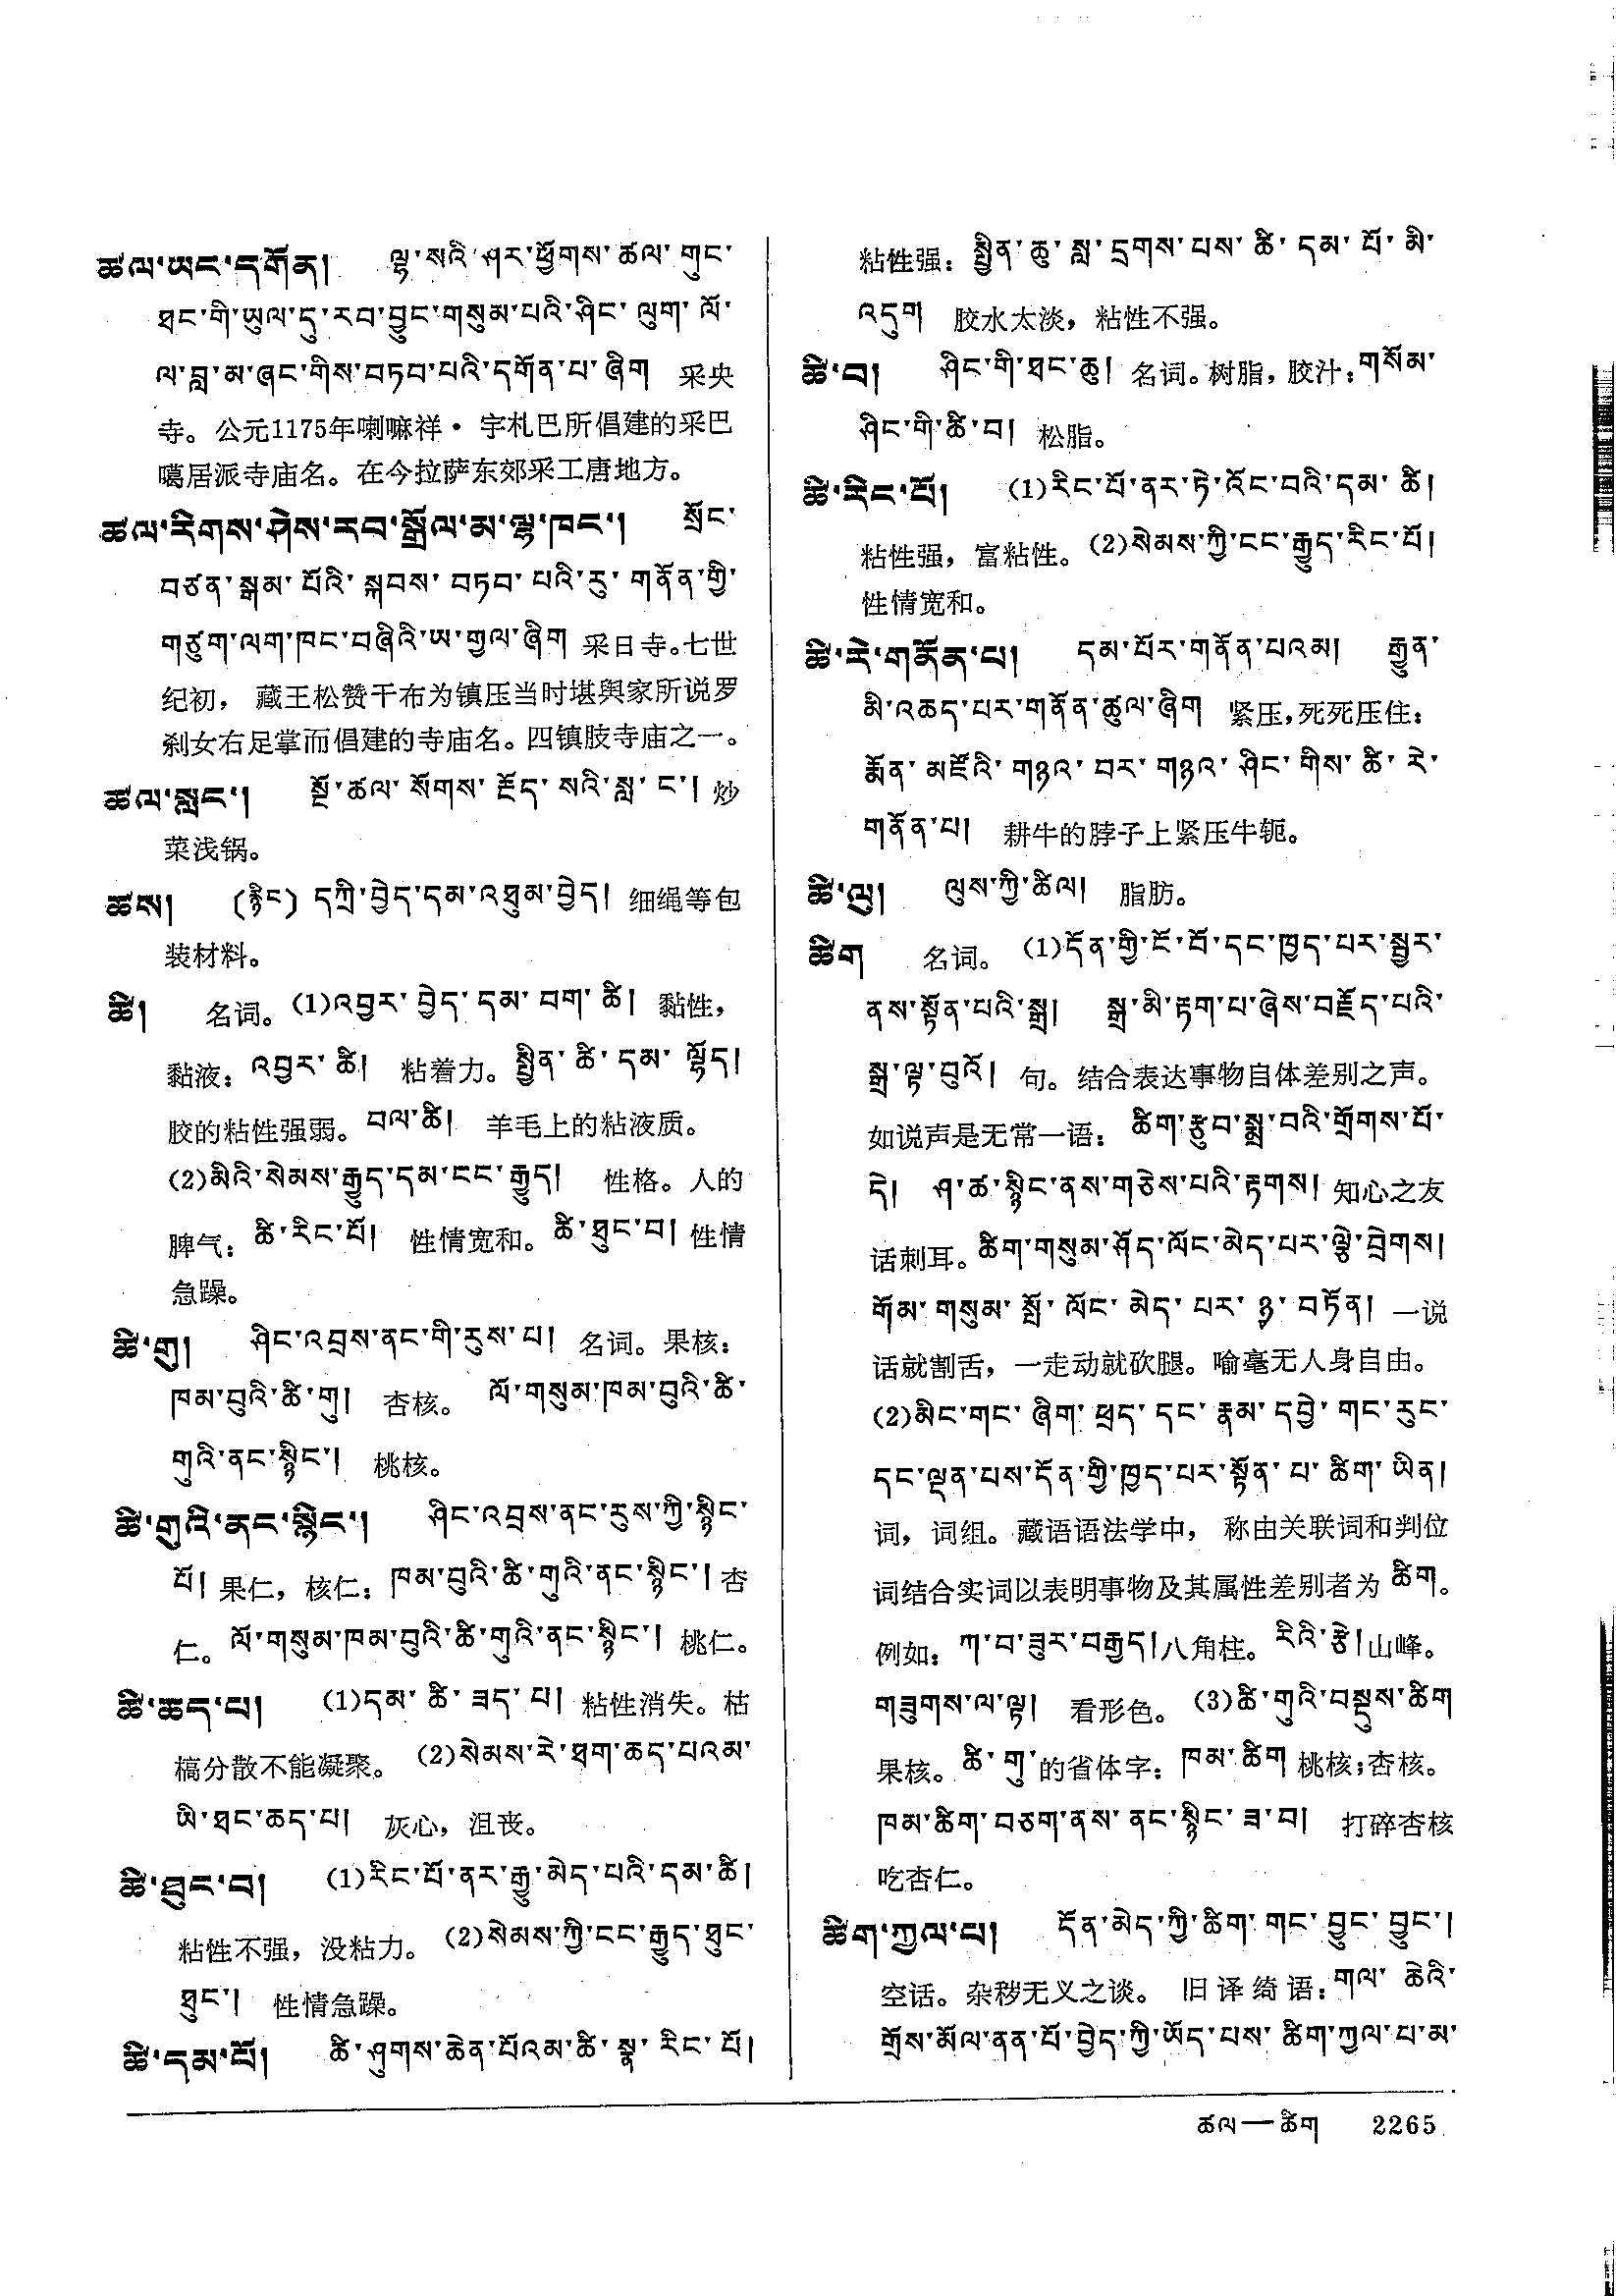 ཚལ་ཡང་དགོན། ལྷ་སའི་ཤར་ཕྱོགས་ཚལ་གུང་
ཐང་གི་ཡུལ་དུ་རབ་བྱུང་གསུམ་པའི་ཤིང་ལུག་ལོ་
ལ་བླ་མ་ཞང་གིས་བཏབ་པའི་དགོན་པ་ཞིག 采央
寺。公元1175年喇嘛祥·宇札巴所倡建的采巴
噶居派寺庙名。在今拉萨东郊采工唐地方。
ཚལ་རིགས་ཤེས་རབ་སྒྲོལ་མ་ལྷ་ཁང་། སྲོང་
བཙན་སྒམ་པོའི་སྐབས་བཏབ་པའི་རུ་གནོན་གྱི་
གཙུག་ལག་ཁང་བཞིའི་ཡ་གྱལ་ཞིག 采日寺。七世
纪初，藏王松赞干布为镇压当时堪舆家所说罗
刹女右足掌而倡建的寺庙名。四镇肢寺庙之一。
ཚལ་སླང་། སྔོ་ཚལ་སོགས་རྔོད་སའི་སླ་ང་། 炒
菜浅锅。
ཚས། (རྙིང) དཀྲི་བྱེད་དམ་འཐུམ་བྱེད། 细绳等包
装材料。
ཚི། 名词。(1)འབྱར་བྱེད་དམ་བག་ཚི། 黏性，
黏液：འབྱར་ཚི། 粘着力。སྤྱིན་ཚི་དམ་ལྷོད།
胶的粘性强弱。བལ་ཚི། 羊毛上的粘液质。
(2)མིའི་སེམས་རྒྱུད་དམ་ངང་རྒྱུད། 性格。人的
脾气：ཚི་རིང་པོ། 性情宽和。ཚི་ཐུང་བ། 性情
急躁。
ཚི་གུ། ཤིང་འབྲས་ནང་གི་རུས་པ། 名词。果核：
ཁམ་བུའི་ཚི་གུ། 杏核。ལོ་གསུམ་ཁམ་བུའི་ཚི་
གུའི་ནང་སྙིང་། 桃核。
ཚི་གུའི་ནང་སྙིང་། ཤིང་འབྲས་ནང་རུས་ཀྱི་སྙིང་
པོ། 果仁，核仁：ཁམ་བུའི་ཚི་གུའི་ནང་སྙིང་། 杏
仁。ལོ་གསུམ་ཁམ་བུའི་ཚི་གུའི་ནང་སྙིང་། 桃仁。
ཚི་ཆད་པ། (1)དམ་ཚི་ཟད་པ། 粘性消失。枯
槁分散不能凝聚。(2)སེམས་རེ་ཐག་ཆད་པའམ་
ཡི་ཐང་ཆད་པ། 灰心，沮丧。
ཚི་ཐུང་བ། (1)རིང་པོ་ནར་རྒྱུ་མེད་པའི་དམ་ཚི།
粘性不强，没粘力。(2)སེམས་ཀྱི་ངང་རྒྱུད་ཐུང་
ཐུང་། 性情急躁。
ཚི་དམ་པོ། ཚི་ཤུགས་ཆེན་པོའམ་ཚི་སྣ་རིང་པོ།
粘性强：སྤྱིན་ཆུ་སླ་དྲགས་པས་ཚི་དམ་པོ་མི་
འདུག 胶水太淡，粘性不强。
ཚི་བ། ཤིང་གི་ཐང་ཆུ། 名词。树脂，胶汁：གསོམ་
ཤིང་གི་ཚི་བ། 松脂。
ཚི་རིང་པོ། (1)རིང་པོ་ནར་ཏེ་འོང་བའི་དམ་ཚི།
粘性强，富粘性。(2)སེམས་ཀྱི་ངང་རྒྱུད་རིང་པོ།
性情宽和。
ཚི་རེ་གནོན་པ། དམ་པོར་གནོན་པའམ། རྒྱུན་
མི་འཆད་པར་གནོན་ཚུལ་ཞིག 紧压，死死压住：
རྨོན་མཛོའི་གཉའ་བར་གཉའ་ཤིང་གིས་ཚི་རེ་
གནོན་པ། 耕牛的脖子上紧压牛轭。
ཚི་ལུ། ལུས་ཀྱི་ཚིལ། 脂肪。
ཚིག 名词。(1)དོན་གྱི་ངོ་བོ་དང་ཁྱད་པར་སྦྱར་
ནས་སྟོན་པའི་སྒྲ། སྒྲ་མི་རྟག་པ་ཞེས་བརྗོད་པའི་
སྒྲ་ལྟ་བུའོ། 句。结合表达事物自体差别之声。
如说声是无常一语：ཚིག་རྩུབ་སྨྲ་བའི་གྲོགས་པོ་
དེ། ཤ་ཚ་སྙིང་ནས་གཅེས་པའི་རྟགས། 知心之友
话刺耳。ཚིག་གསུམ་ཤོད་ལོང་མེད་པར་ལྕེ་བྲེགས།
གོམ་གསུམ་སྤོ་ལོང་མེད་པར་ཉྭ་བཏོན། 一说
话就割舌，一走动就砍腿。喻毫无人身自由。
(2)མིང་གང་ཞིག་ཕྲད་དང་རྣམ་དབྱེ་གང་རུང་
དང་ལྡན་པས་དོན་གྱི་ཁྱད་པར་སྟོན་པ་ཚིག་ཡིན།
词，词组。藏语语法学中，称由关联词和判位
词结合实词以表明事物及其属性差别者为ཚིག。
例如：ཀ་བ་ཟུར་བརྒྱད།八角柱。རིའི་རྩེ།山峰。
གཟུགས་ལ་ལྟ། 看形色。(3)ཚི་གུའི་བསྡུས་ཚིག
果核。ཚི་གུ་的省体字：ཁམ་ཚིག 桃核；杏核。
ཁམ་ཚིག་བཅག་ནས་ནང་སྙིང་ཟ་བ། 打碎杏核
吃杏仁。
ཚིག་ཀྱལ་པ། དོན་མེད་ཀྱི་ཚིག་གང་བྱུང་བྱུང་།
空话。杂秽无义之谈。旧译绮语：གལ་ཆེའི་
གྲོས་མོལ་ནན་པོ་བྱེད་ཀྱི་ཡོད་པས་ཚིག་ཀྱལ་པ་མ་
ཚལ—ཚིག 2265